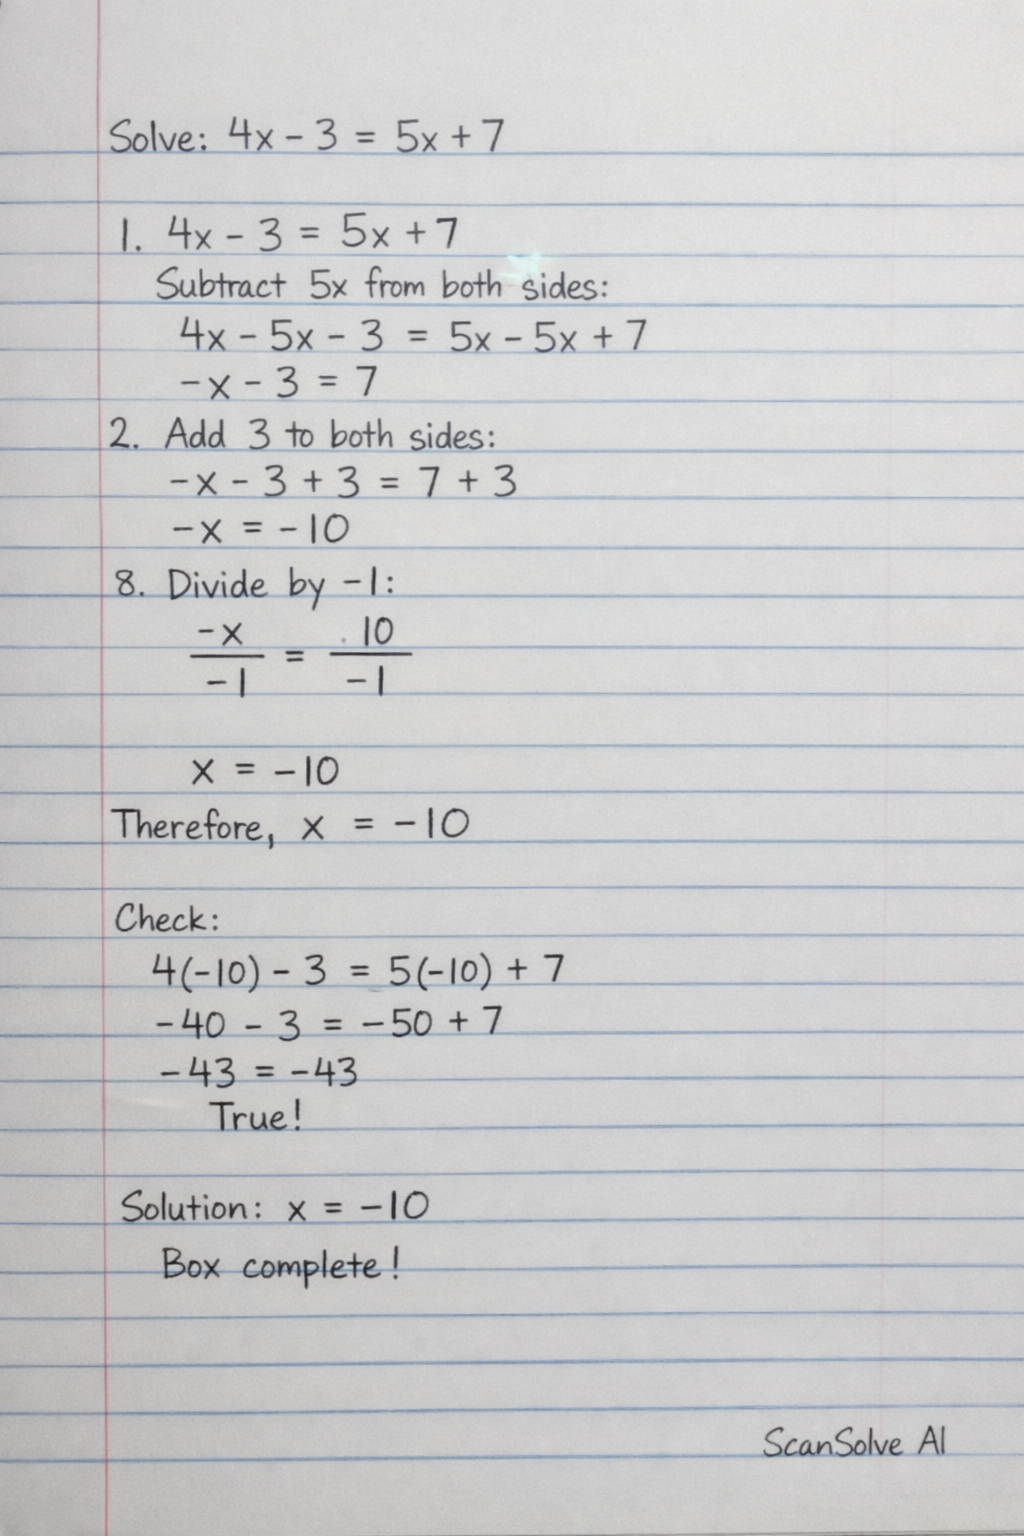 Solve: 4x - 3 = 5x + 7
1. 4x - 3 = 5x + 7
Subtract 5x from both sides:
4x - 5x - 3 = 5x - 5x + 7
-x - 3 = 7
2. Add 3 to both sides:
-x - 3 + 3 = 7 + 3
-x = -10
8. Divide by -1:
-x/-1 = 10/-1
x = -10
Therefore, x = -10
Check:
4(-10) - 3 = 5(-10) + 7
-40 - 3 = -50 + 7
-43 = -43
True!
Solution: x = -10
Box complete!
ScanSolve AI